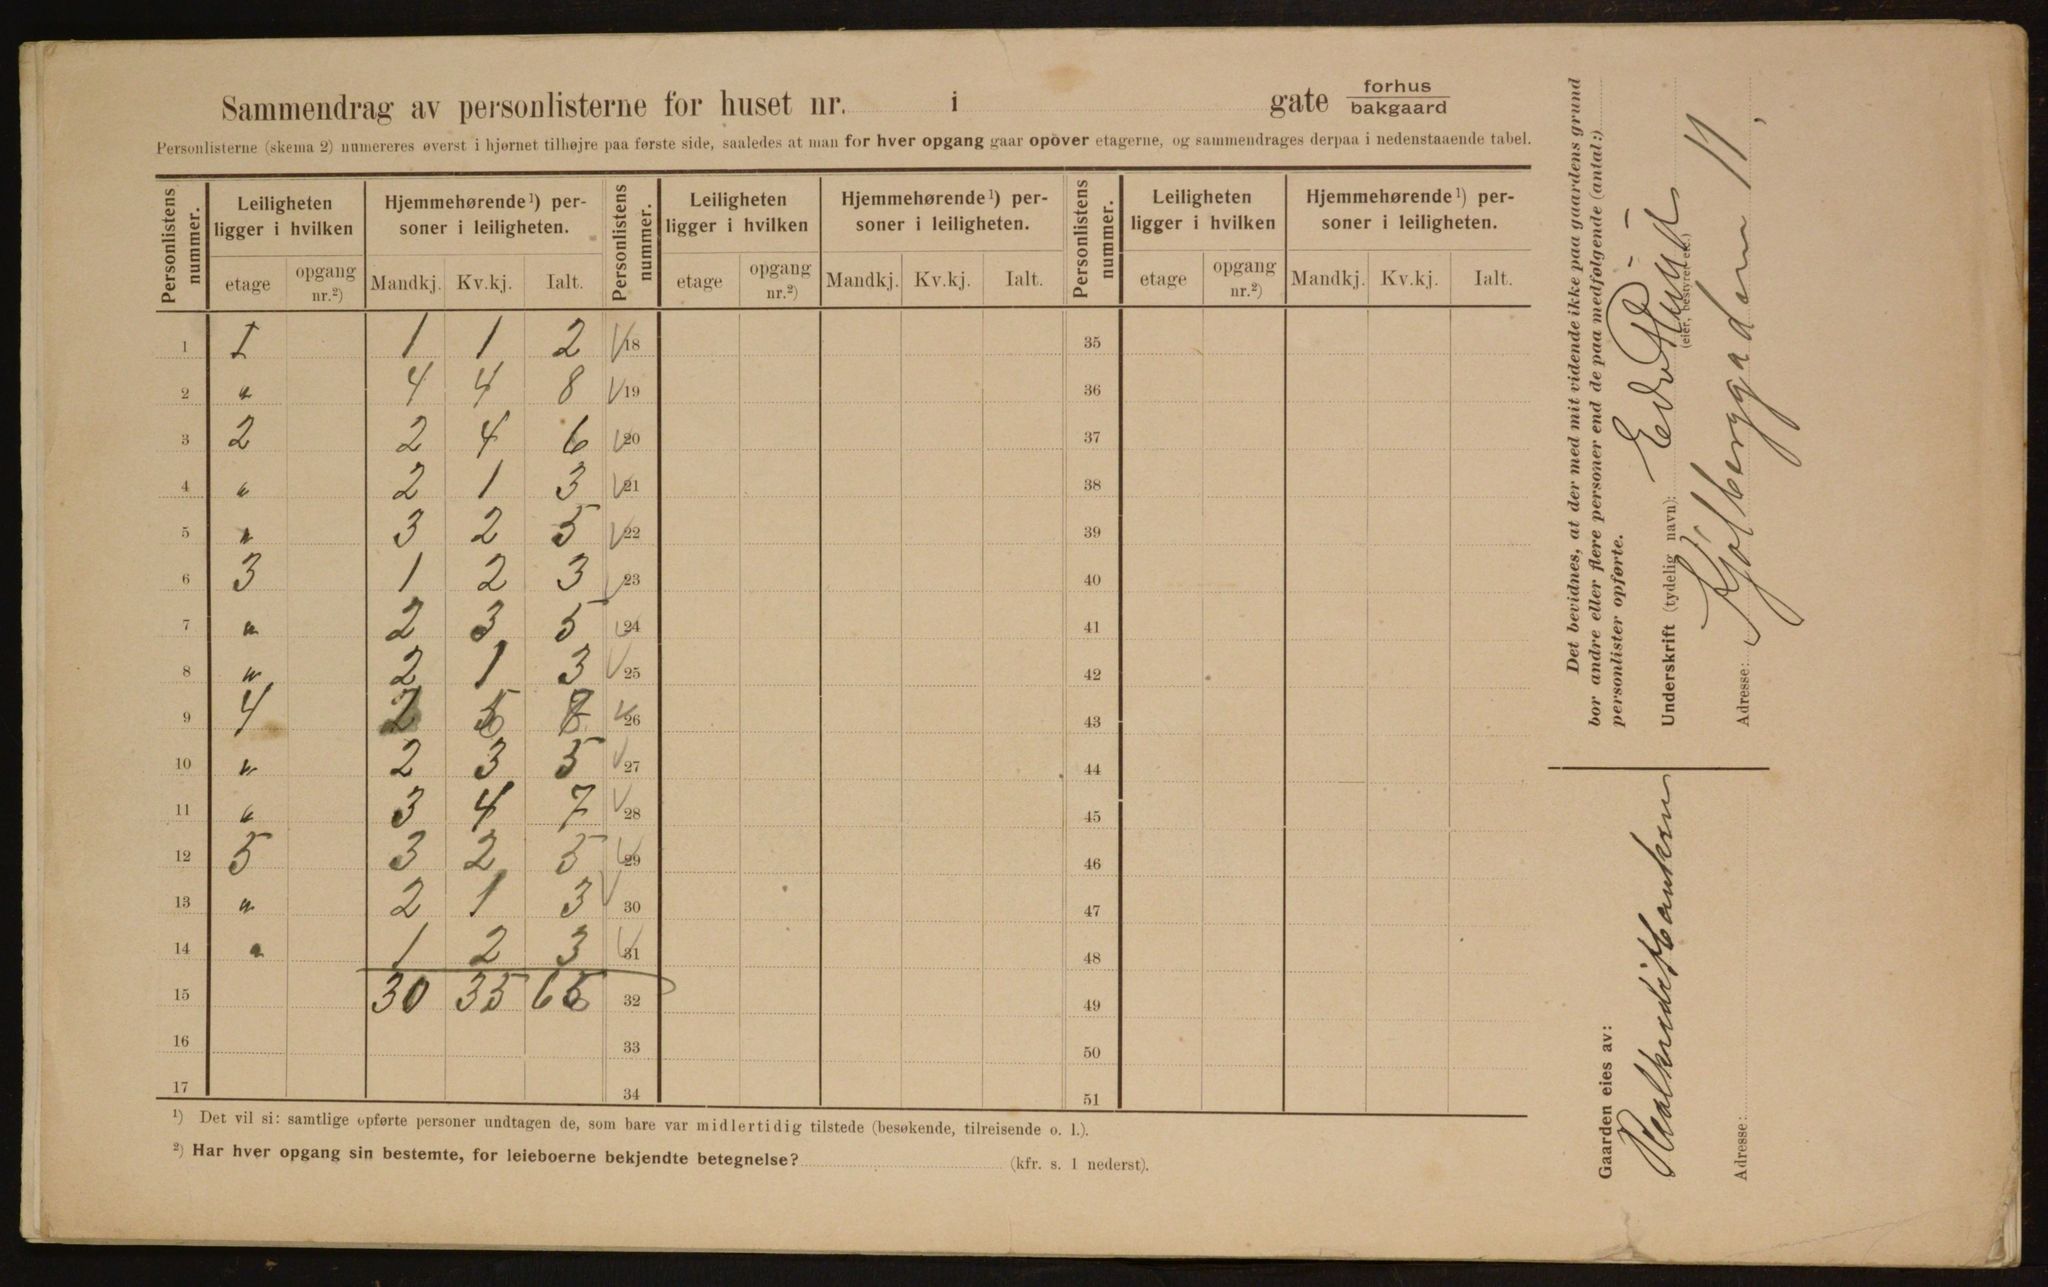 Sammendrag av personlisterne for huset nr. i gate forhus
bakgaard
Personlisterne (skema 2) numereres øverst i hjørnet tilhøjre paa første side, saaledes at man for hver opgang gaar opover etagerne, og sammendrages derpaa i nedenstaaende tabel.
Personlistens nummer. Leiligheten ligger i hvilken Hjemmehørende ¹) personer i leiligheten. Personlistens nummer. Leiligheten ligger i hvilken Hjemmehørende ¹) personer i leiligheten. Personlistens nummer. Leiligheten ligger i hvilken Hjemmehørende ¹) personer i leiligheten.
etage opgang nr.²) Mandkj. Kv.kj. Ialt. etage opgang nr.²) Mandkj. Kv.kj. Ialt. etage opgang nr.²) Mandkj. Kv.kj. Ialt.
1 1 1 1 2 18 35
2 " 4 4 8 19 36
3 2 2 4 6 20 37
4 " 2 1 3 21 38
5 " 3 2 5 22 39
6 3 1 2 3 23 40
7 " 2 3 5 24 41
8 " 2 1 3 25 42
9 4 2 26 43
10 " 2 3 5 27 44
11 " 3 4 7 28 45
12 5 3 2 5 29 46
13 " 2 1 3 30 47
14 " 1 2 3 31 48
15 30 35 65 32 49
16 33 50
17 34 51
¹) Det vil si: samtlige opførte personer undtagen de, som bare var midlertidig tilstede (besøkende, tilreisende o. l.).
²) Har hver opgang sin bestemte, for leieboerne bekjendte betegnelse? (kfr. s. 1 nederst).
Det bevidnes, at der med mit vidende ikke paa gaardens grund
bor andre eller flere personer end de paa medfølgende (antal:)
personlister opførte.
Underskrift (tydelig navn): Edv
(eier, bestyrer etc.)
Adresse: Kjølberggaden 11,
Gaarden eies av:
Realkreditbanken
Adresse: